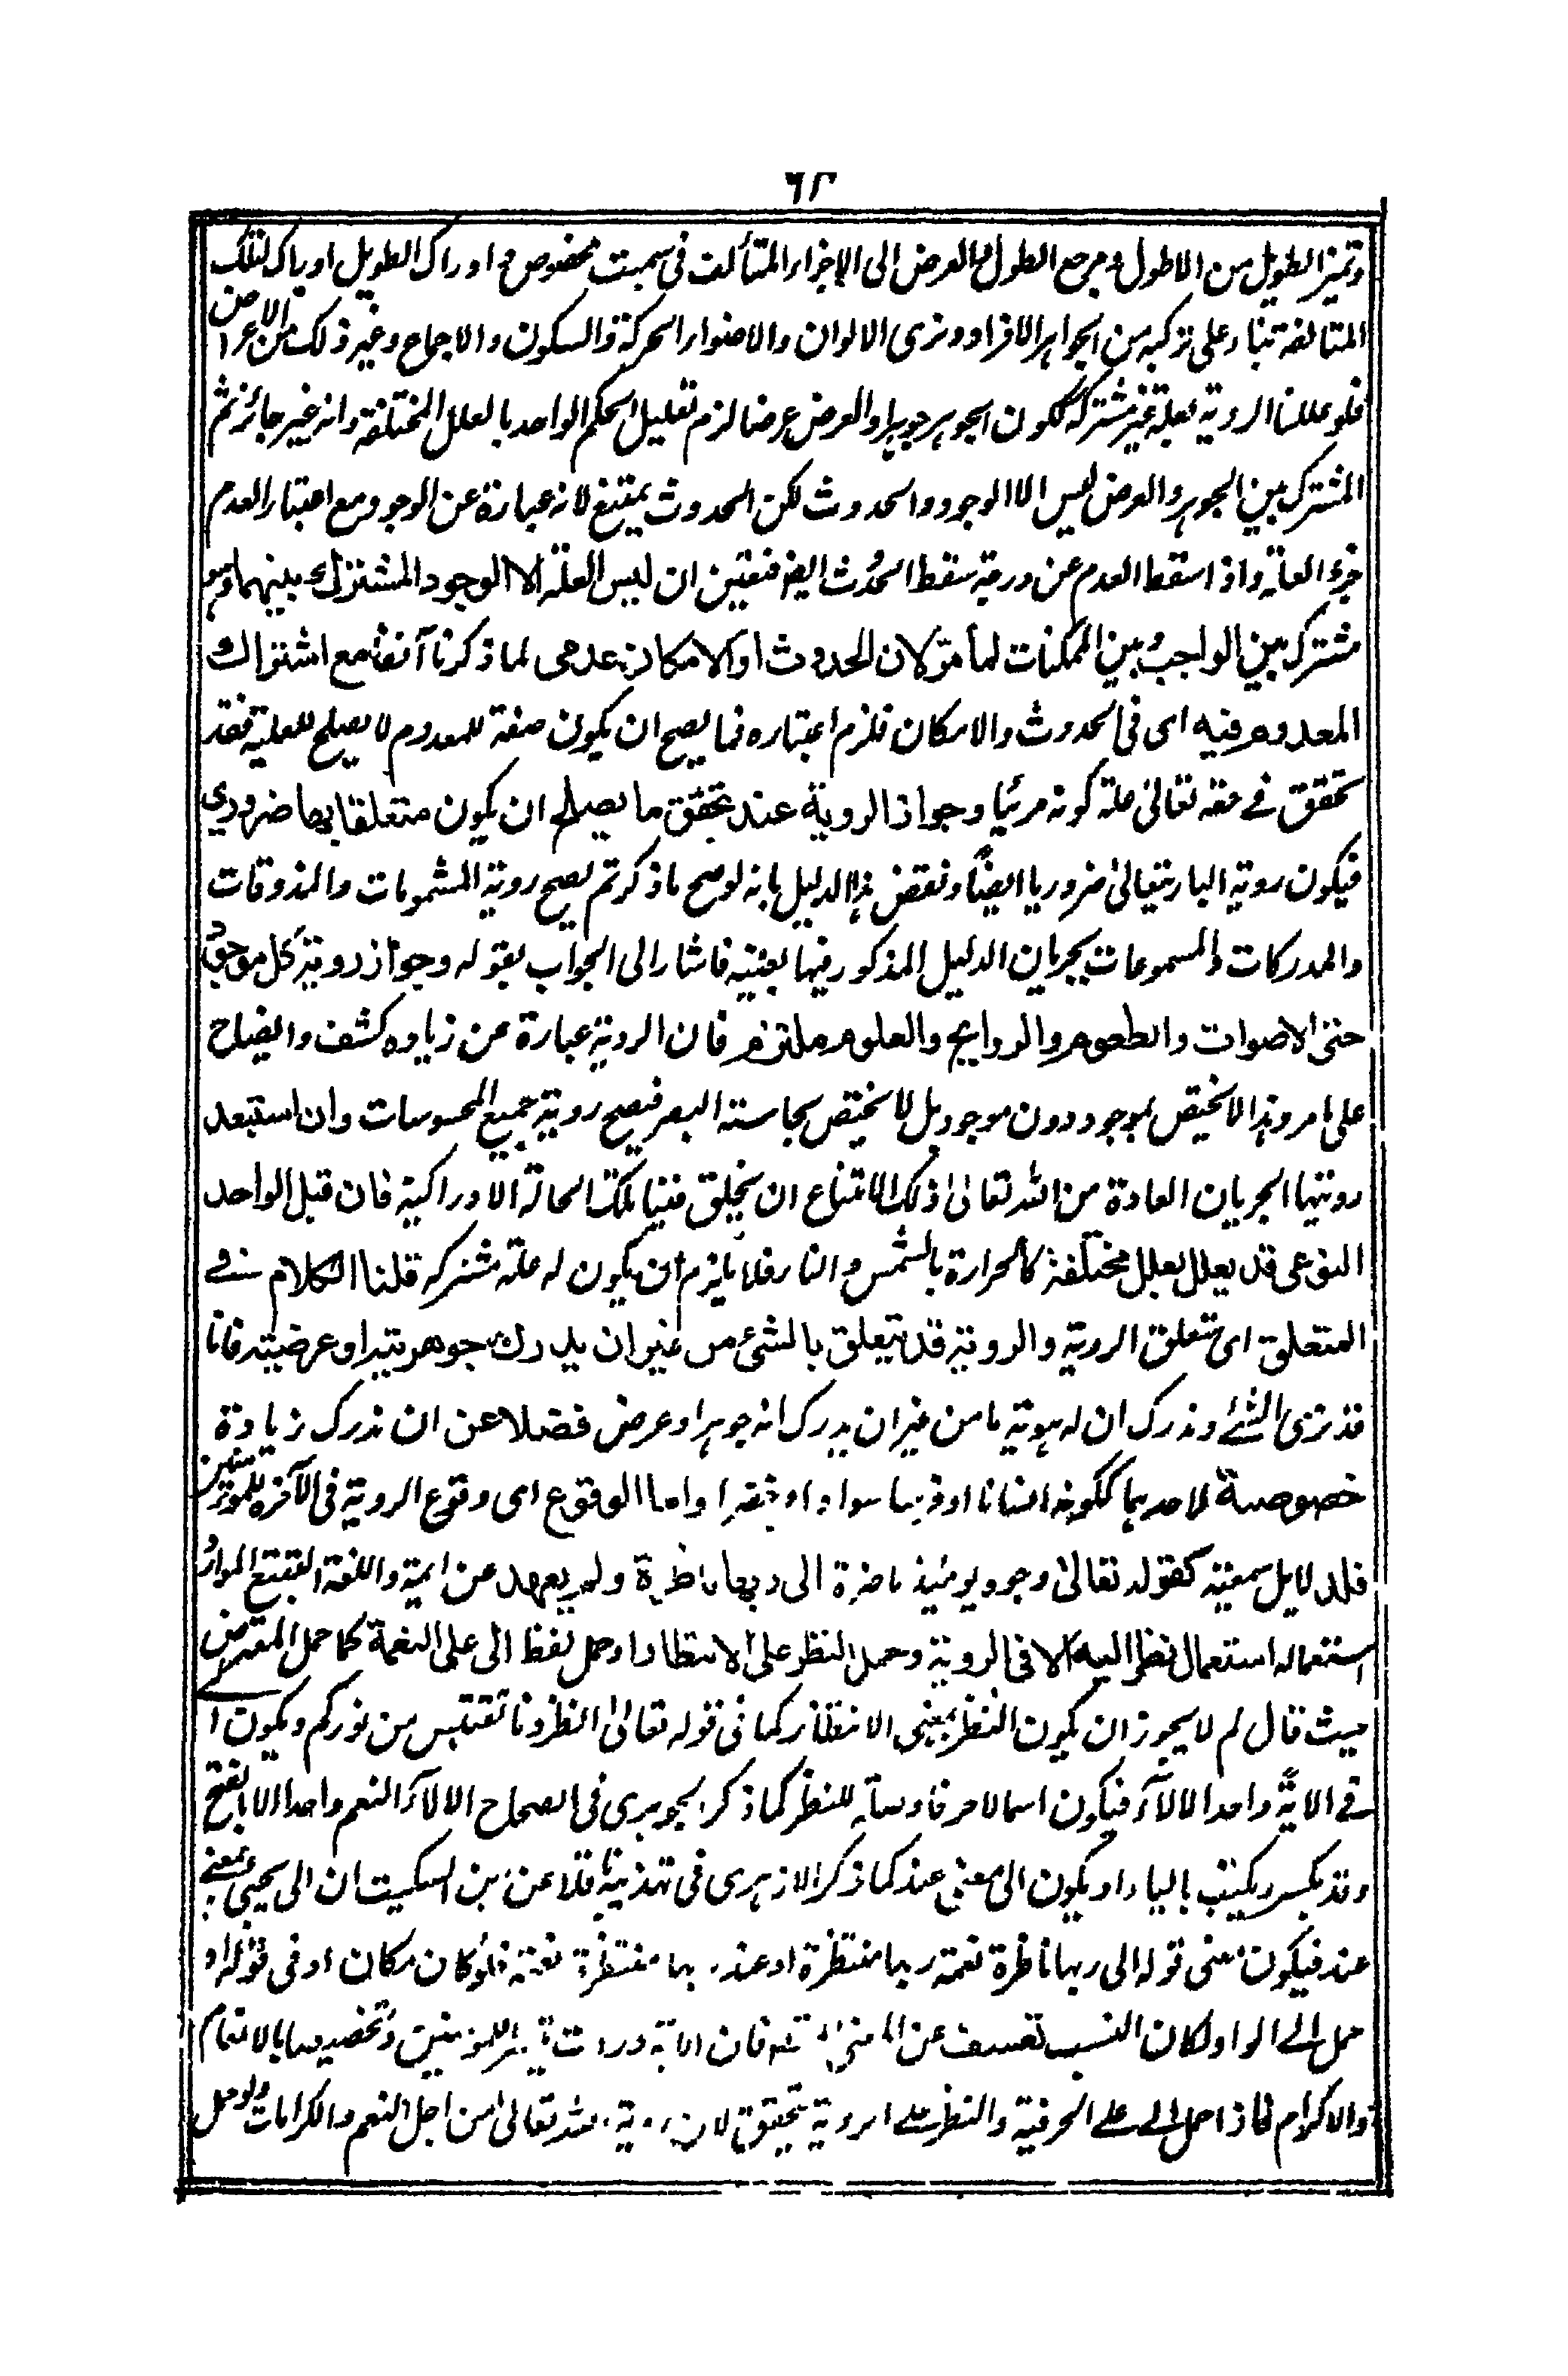 ٦٢
وتميز الطويل من الاطول ومرجع الطول والعرض الى الاجزاء المتألف في سمت مخصوص وادراك الطويل ادراك لتلك
المتألفة بناء على تركبه من الجواهر الافراد ونرى الالوان والاضواء والحركة والسكون والاجماع وغير ذلك من الاعراض
فلو عللنا الروية بعلة غير مشتركة ككون الجوهر جوهرا والعرض عرضا لزم تعليل الحكم الواحد بالعلل المختلفة وانه غير جائز ثم
المشترك بين الجوهر والعرض ليس الا الوجود والحدوث لكن الحدوث يمتنع لانه عبارة عن الوجود مع اعتبار العدم
جزء العلة واذا سقط العدم عن درجة سقط الحدوث ايضا فتعين ان ليس العلة الا الوجود المشترك بينهما وهو
مشترك بين الواجب وبين الممكنات لما مر لان الحدوث او الامكان عدمى لما ذكرنا آنفا مع اشتراك
المعدوم فيه اى فى الحدوث والامكان فلزم اعتباره فما يصح ان يكون صفة للمعدوم لا يصلح للعلية فقد
تحقق في حقه تعالى علة كونه مرئيا وجواز الروية عند تحقق ما يصلح ان يكون متعلقا بها ضروري
فيكون روية البارى تعالى ضروريا ايضا ونقض هذا الدليل بانه لو صح ما ذكرتم لصح روية المشمومات والمذوقات
والمدركات والمسموعات بجريان الدليل المذكور فيها بعينه فاشار الى الجواب بقوله وجواز روية كل موجود
حتى الاصوات والطعوم والروايح والعلوم ملتزم فان الروية عبارة عن زيادة كشف وايضاح
على امر وهذا لا يختص بموجود دون موجود بل لا يختص بحاسة البصر فيصح روية جميع المحسوسات وان استبعد
رويتها لجريان العادة من الله تعالى اذ ذلك لامتناع ان يخلق فينا تلك الحالة الادراكية فان قيل الواحد
النوعى قد يعلل بعلل مختلفة كالحرارة بالشمس والنار فلا يلزم ان يكون له علة مشتركة قلنا الكلام في
المتعلق اى متعلق الروية والروية قد يتعلق بالشئ من غير ان يدرك جوهريته او عرضيته فانا
قد نرى الشئ وندرك ان له هوية ما من غير ان يدرك انه جوهر او عرض فضلا عن ان ندرك زيادة
خصوصية لاحدهما ككونه انسانا او فرسا سوادا او خضرا واما الوقوع اى وقوع الروية فى الآخرة للمؤمنين
فلدلايل سمعية كقوله تعالى وجوه يومئذ ناضرة الى ربها ناظرة ولم يعهد عن ايمة اللغة المتتبع لموارد
استعماله استعمال نظر اليه الا فى الروية وحمل النظر على الانتظار او حمل لفظ الى على النعمة كما حمل المعترض
حيث قال لم لا يجوز ان يكون النظر بمعنى الانتظار كما فى قوله تعالى انظرونا نقتبس من نوركم ويكون ا
فى الاية واحدا لالاآء فيكون اسما لا حرفا وصلة للنظر كما ذكر الجوهرى فى الصحاح الالاآء النعم واحدا الا بالفتح
وقد يكسر ويكتب بالياء او يكون الى بمعنى عند كما ذكر الازهرى فى تهذيبه نقلا عن ابن السكيت ان الى يجئ بمعنى
عند فيكون معنى قوله الى ربها ناظرة نعمة ربها منتظرة او عند ربها منتظرة نعمته فلو كان مكان او فى قوله او
حمل الى الواو لكان انسب تعسف عن فان الاية وردت للمؤمنين وتخصيصها بالانعام
والاكرام فاذا حمل الى على الحرفية والنظر على الروية يتحقق لان روية الله تعالى من اجل النعم والكرامات ولو حمل